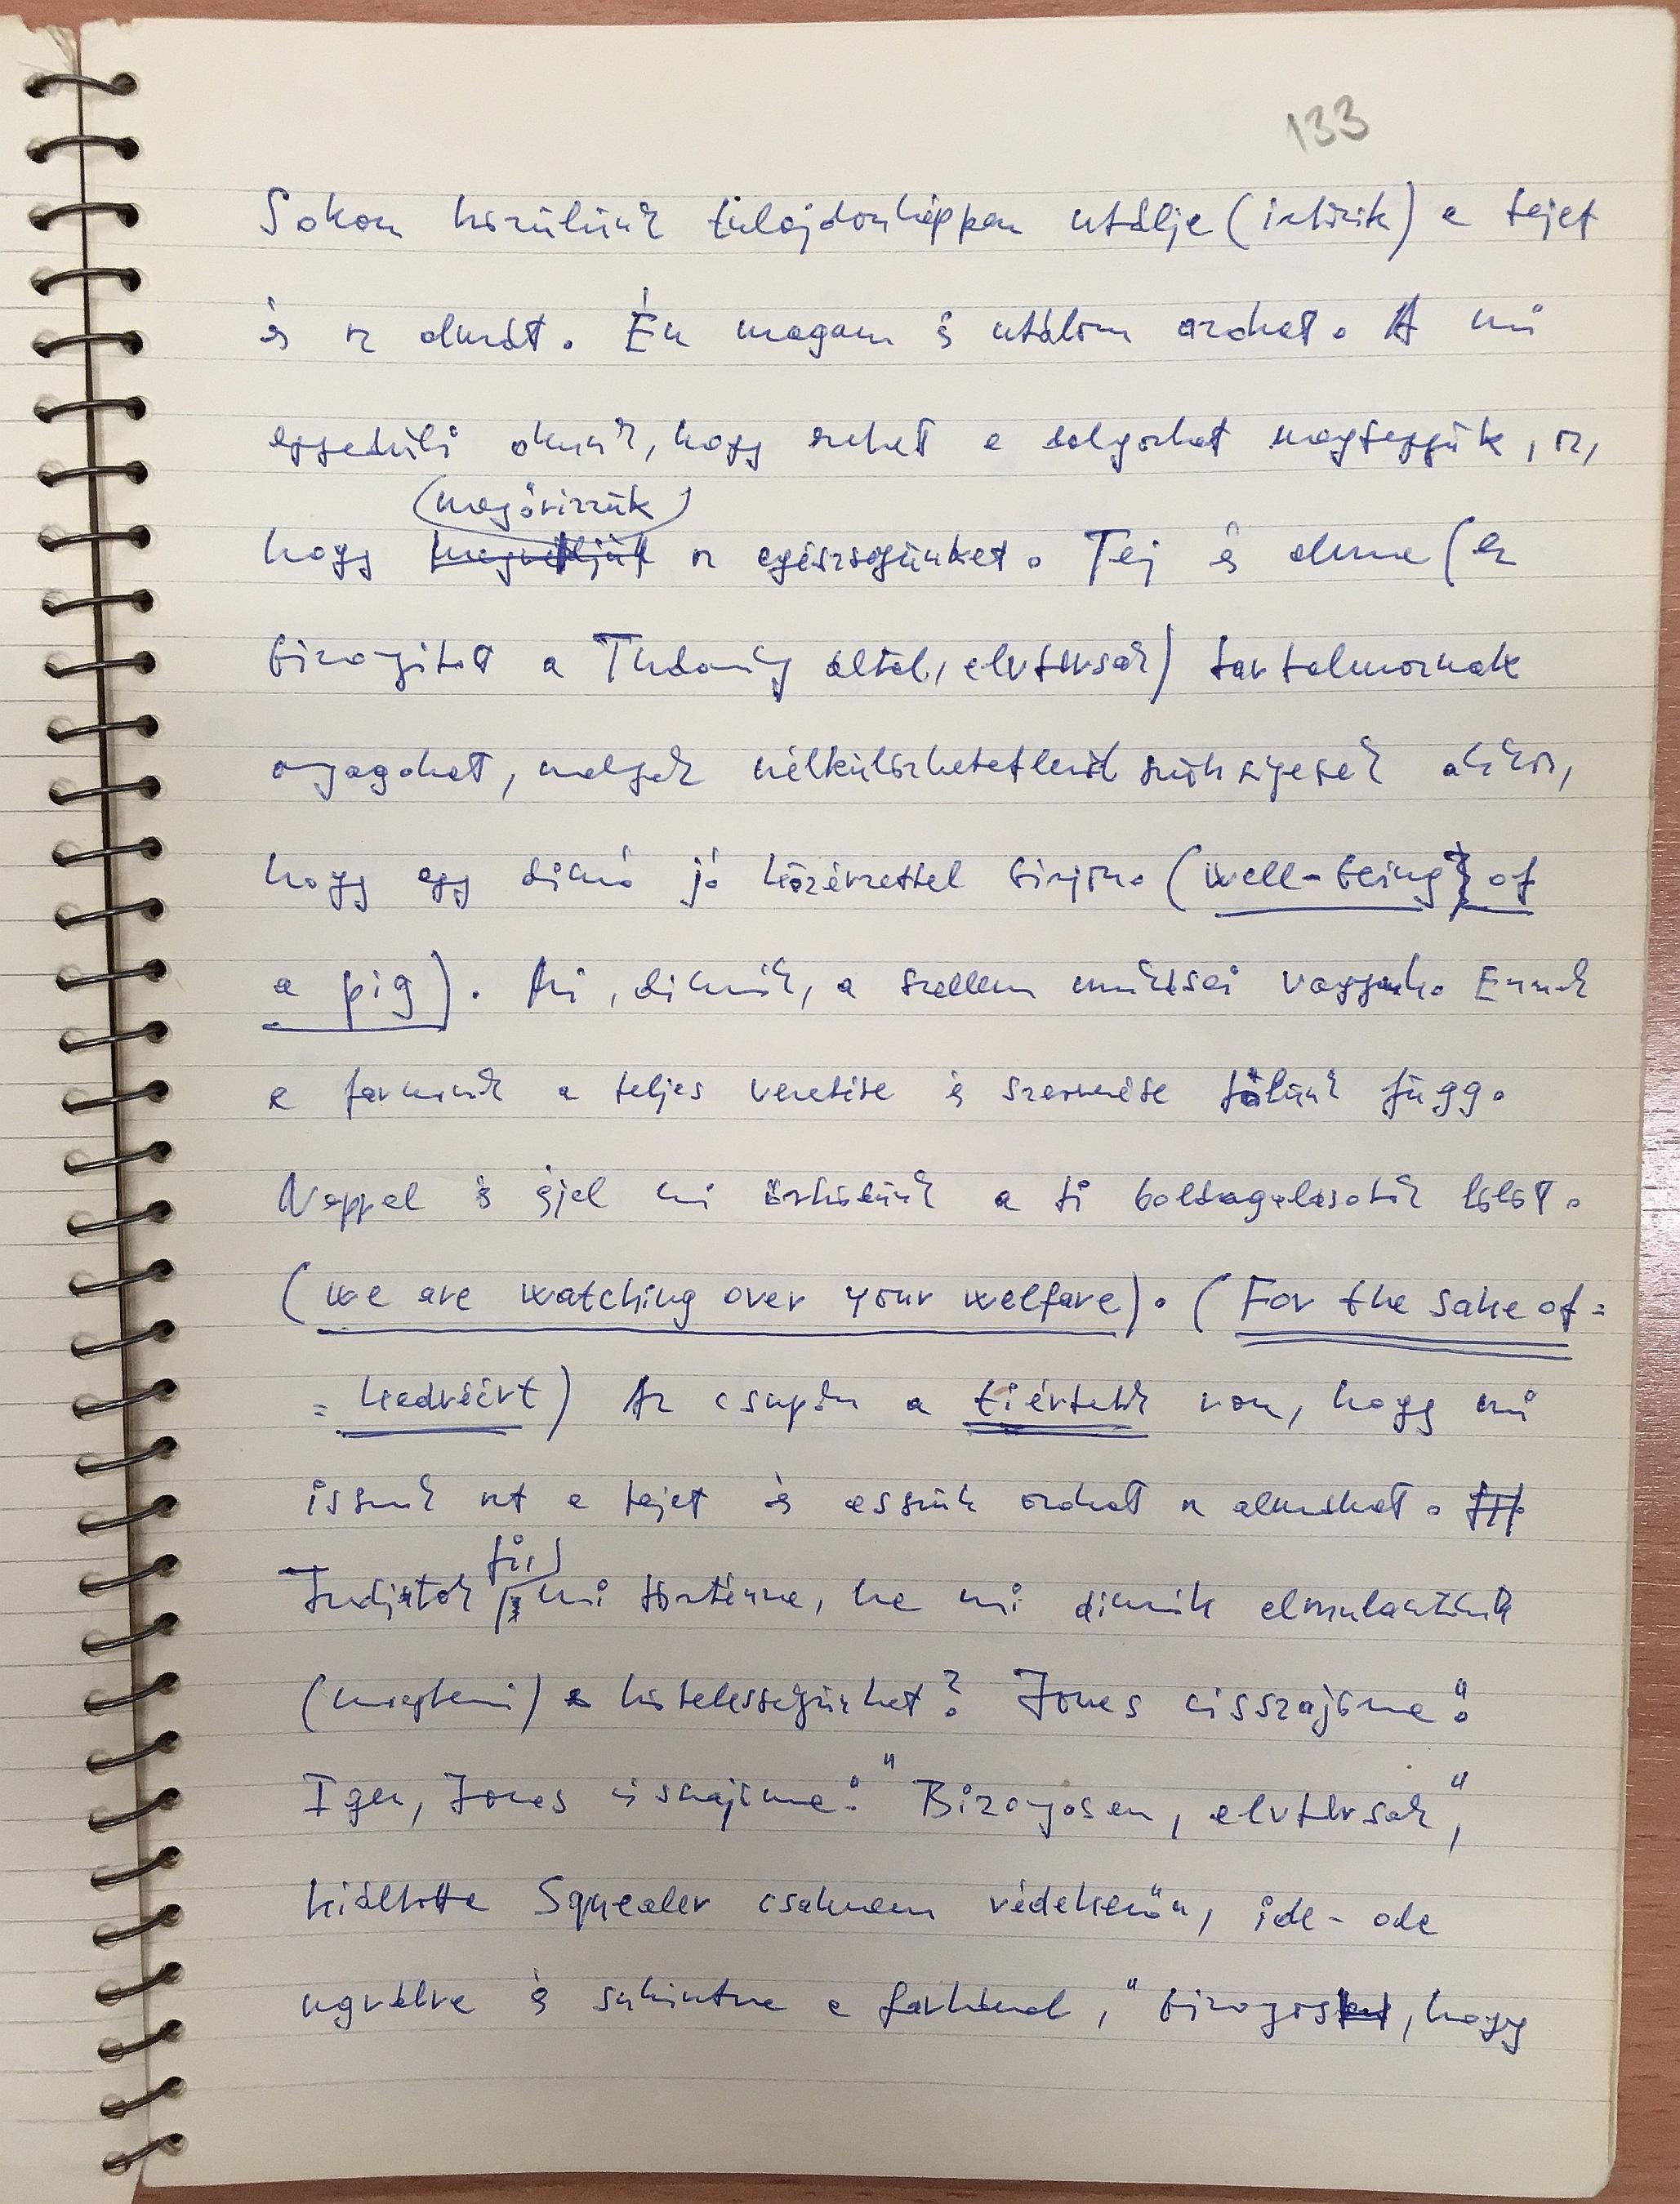 133
Sokan közülünk tulajdonképpen utálja (          ) a tejet
és az almát. Én magam is utálom azokat. A mi
egyedüli okunk, hogy ezeket a dolgokat megtegyük, az,
(megőrizzük)
hogy          az egészségünket. Tej és alma (ez
bizonyított a Tudomány által, elvtársak) tartalmaznak
anyagokat, melyek nélkülözhetetlenül szükségesek ahhoz,
hogy egy disznó jó közérzettel bírjon. (well-being of
a pig). Mi, disznók, a szellem munkásai vagyunk. Ennek
a farmnak a teljes vezetése és szervezése tőlünk függ.
Nappal és éjjel mi őrködünk a ti boldogulásotok fölött.
(we are watching over your welfare). (For the sake of =
= kedvéért) Az csupán a tiértetek van, hogy mi
isszuk azt a tejet és esszük azokat az almákat.
Tudjátok ti, mi történne, ha mi disznók elmulasztanánk
(megtenni) a kötelességünket? Jones visszajönne!
Igen, Jones visszajönne!" Bizonyosan, elvtársak",
kiáltotta Squealer csaknem védekezőn, ide-oda
ugrálva és suhintva a farkával, "bizonyos, hogy